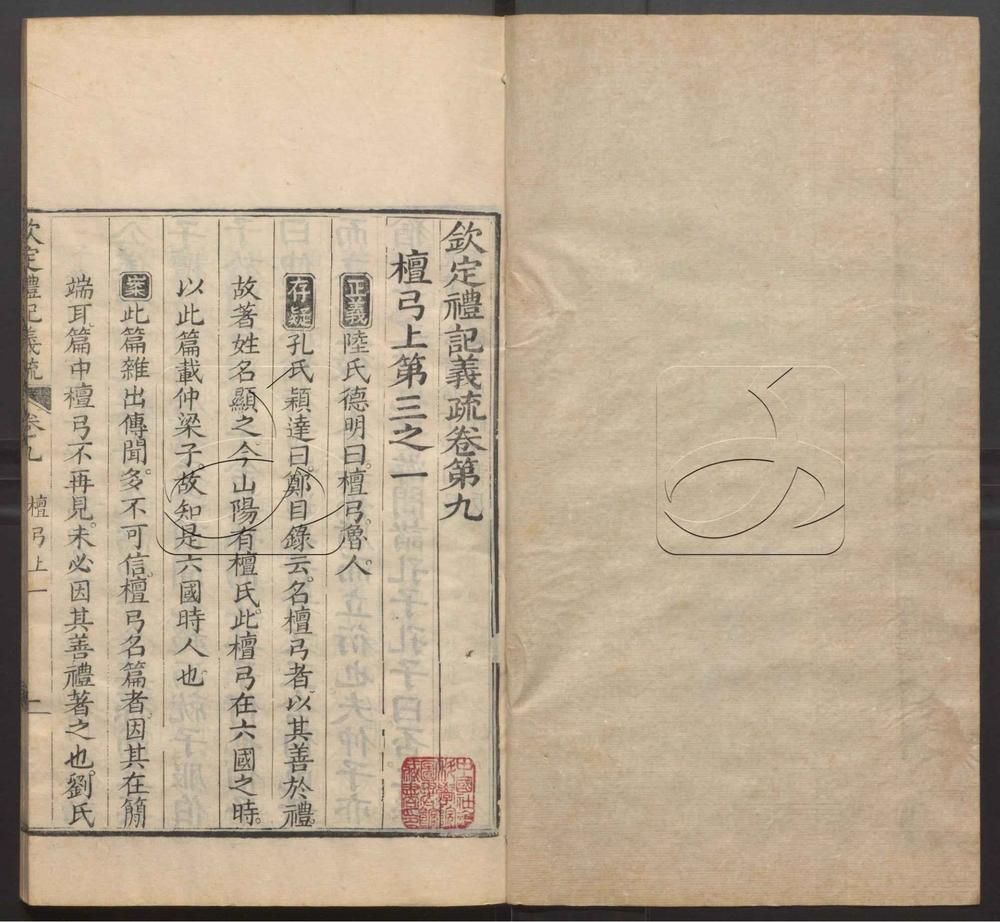 欽定禮記義疏卷第九
檀弓上第三之一
正義陸氏德明曰檀弓魯人。
存疑孔氏穎達曰鄭目錄云名檀弓者以其善於禮
故著姓名顯之今山陽有檀氏此檀弓在六國之時。
以此篇載仲梁子故知是六國時人也
案此篇雜出傳聞多不可信檀弓名篇者因其在簡
端耳篇中檀弓不再見未必因其善禮著之也劉氏
欽定禮記義疏 卷九 檀弓上 一